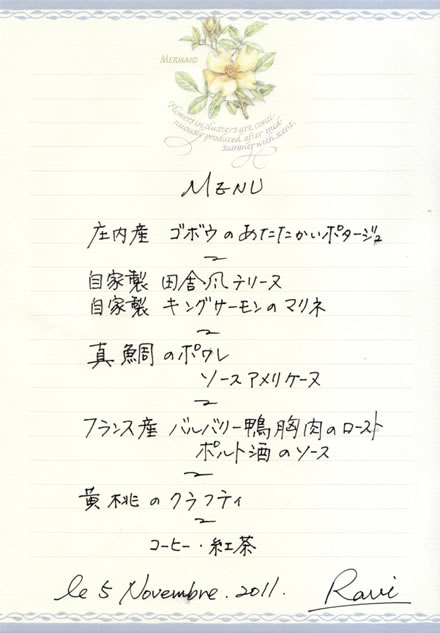 MERMAID
Flowers in clusters are conti-
nuously produced after mid-
summer with scent.
MENU
庄内産 ゴボウのあたたかいポタージュ
自家製 田舎風テリーヌ
自家製 キングサーモンのマリネ
真鯛のポワレ
ソースアメリケーヌ
フランス産 バルバリー鴨胸肉のロースト
ポルト酒のソース
黄桃のクラフティ
コーヒー・紅茶
le 5 Novembre. 2011.
Ravi